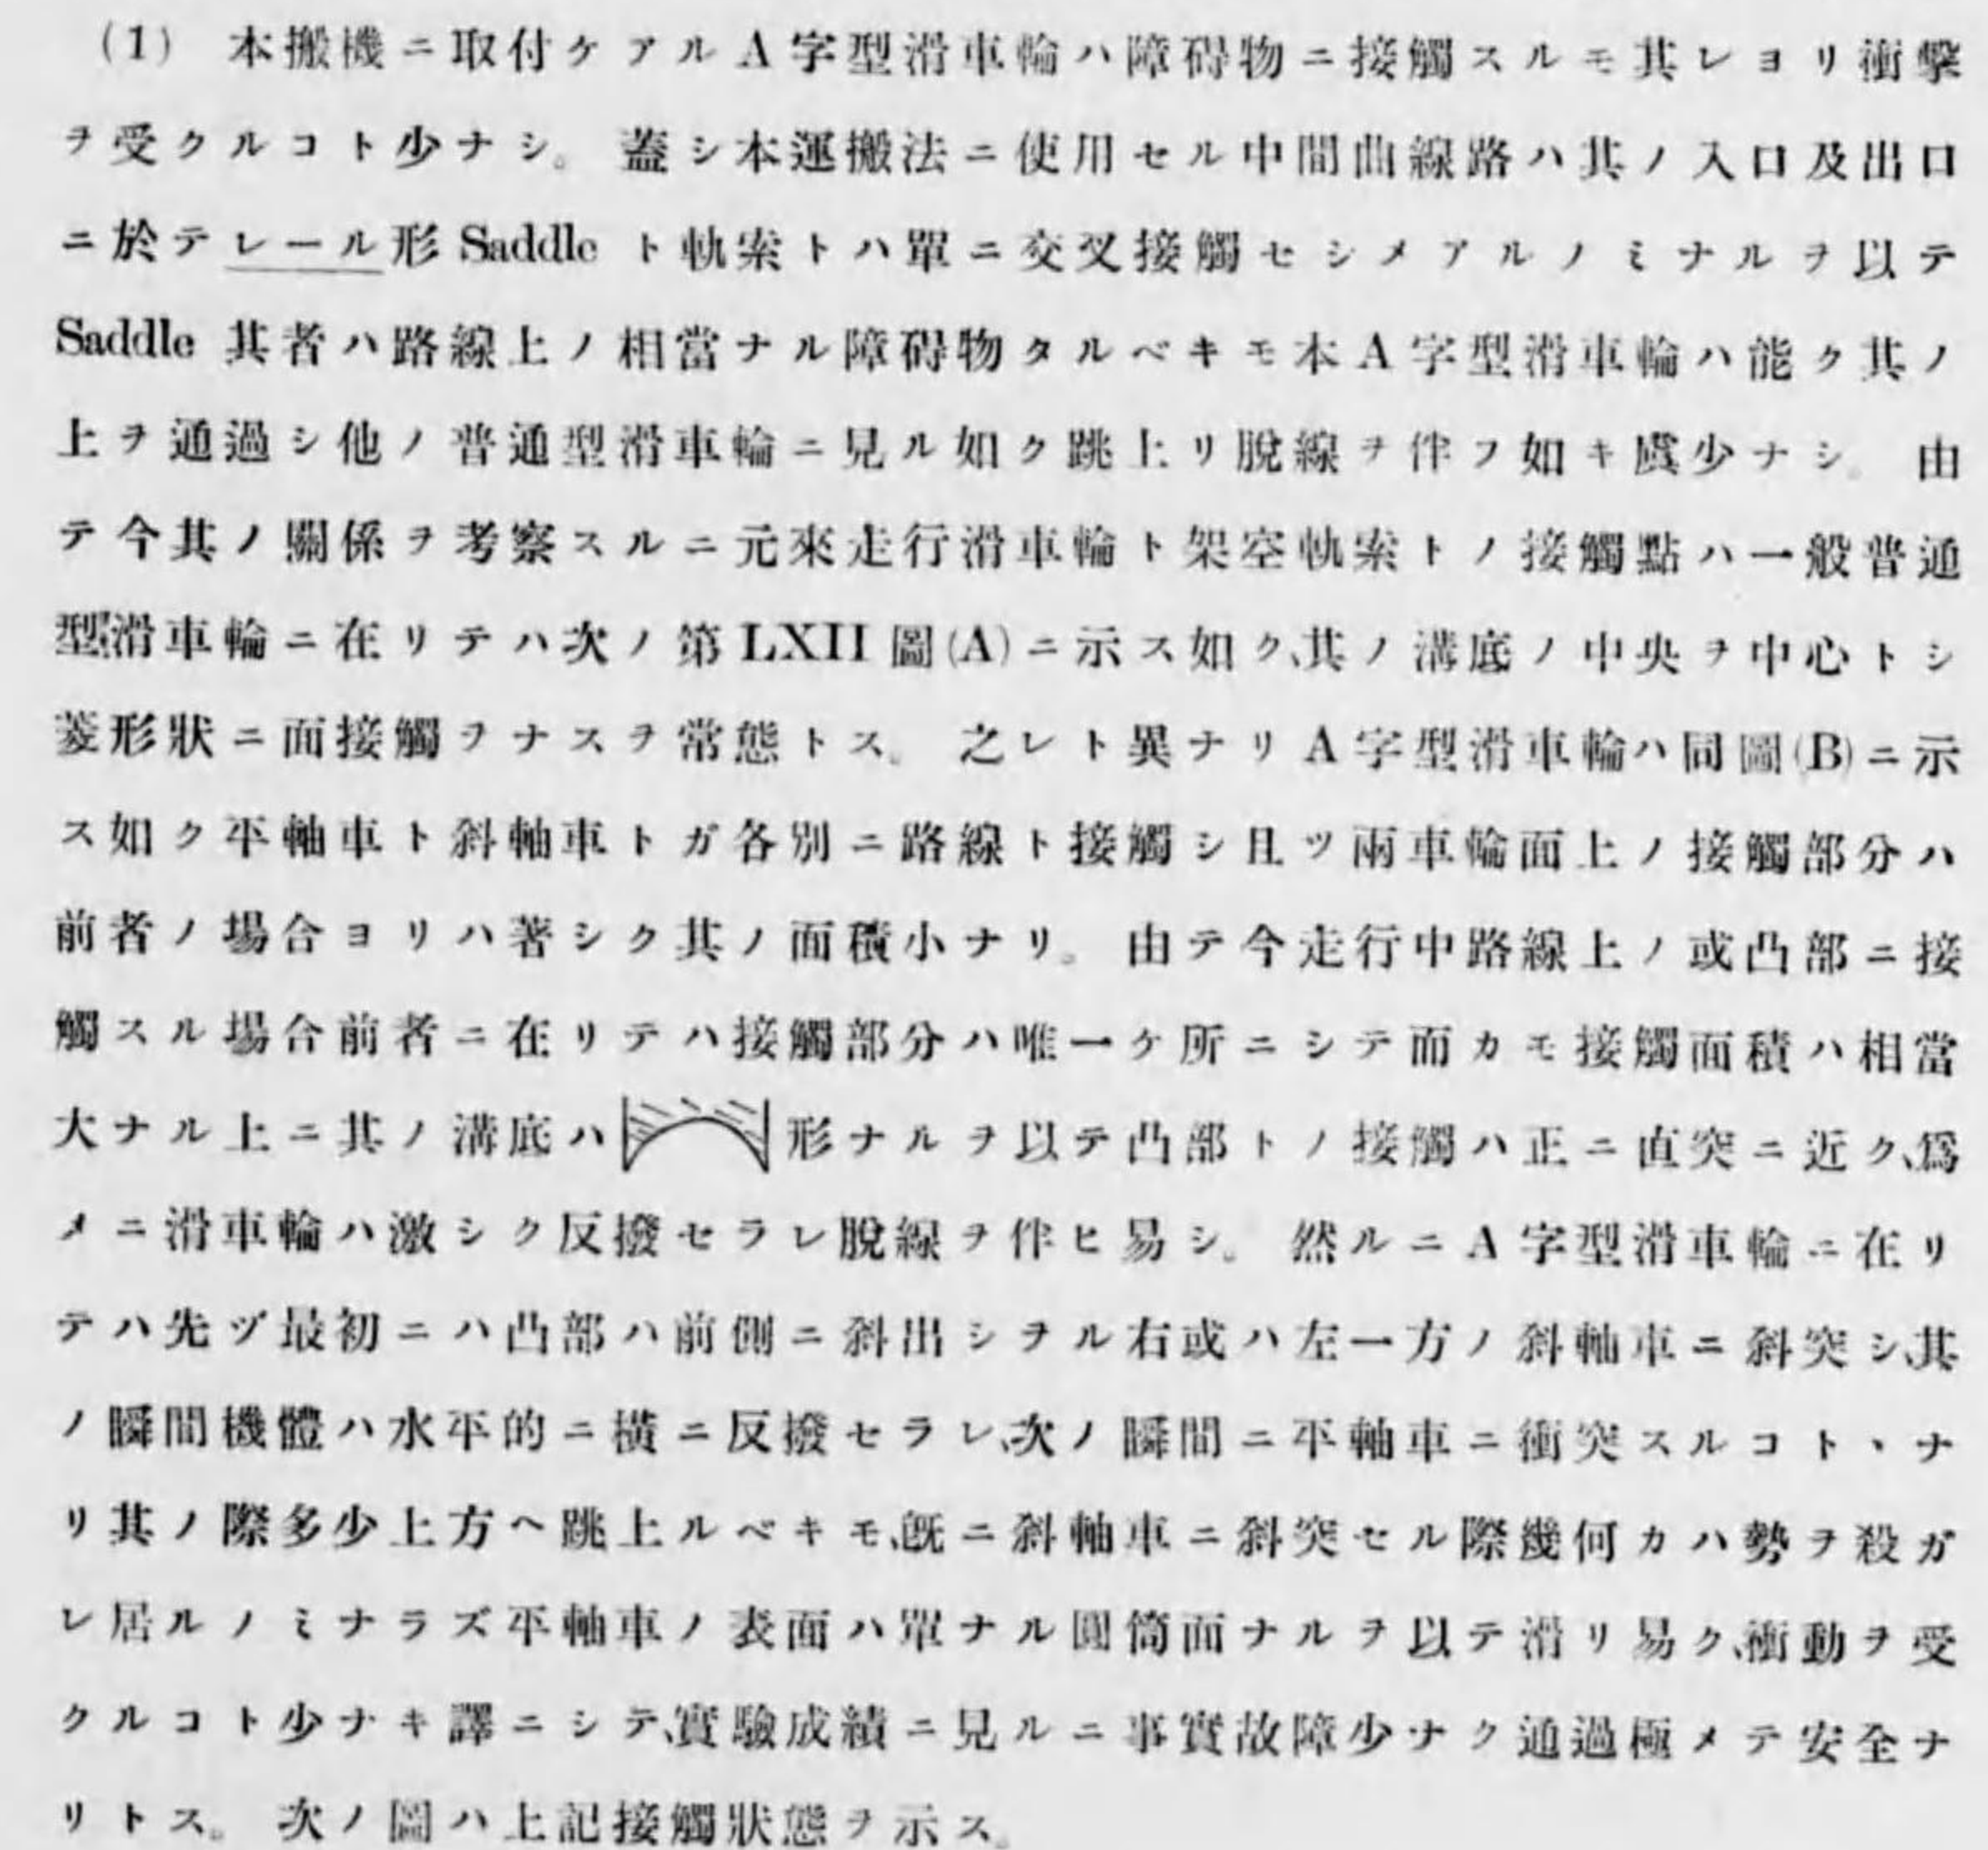 (1) 本搬機ニ取付ケアルA字型滑車輪ハ障碍物ニ接觸スルモ其レヨリ衝擊
ヲ受クルコト少ナシ。蓋シ本運搬法ニ使用セル中間曲線路ハ其ノ入口及出口
ニ於テレール形 Saddle ト軌索トハ單ニ交叉接觸セシメアルノミナルヲ以テ
Saddle 其者ハ路線上ノ相當ナル障碍物タルベキモ本A字型滑車輪ハ能ク其ノ
上ヲ通過シ他ノ普通型滑車輪ニ見ル如ク跳上リ脫線ヲ伴フ如キ虞少ナシ。由
テ今其ノ關係ヲ考察スルニ元來走行滑車輪ト架空軌索トノ接觸點ハ一般普通
型滑車輪ニ在リテハ次ノ第 LXII 圖(A)ニ示ス如ク、其ノ溝底ノ中央ヲ中心トシ
菱形狀ニ面接觸ヲナスヲ常態トス。之レト異ナリA字型滑車輪ハ同圖(B)ニ示
ス如ク平軸車ト斜軸車トガ各別ニ路線ト接觸シ且ツ兩車輪面上ノ接觸部分ハ
前者ノ場合ヨリハ著シク其ノ面積小ナリ。由テ今走行中路線上ノ或凸部ニ接
觸スル場合前者ニ在リテハ接觸部分ハ唯一ケ所ニシテ而カモ接觸面積ハ相當
大ナル上ニ其ノ溝底ハ形ナルヲ以テ凸部トノ接觸ハ正ニ直突ニ近ク、爲
メニ滑車輪ハ激シク反撥セラレ脫線ヲ伴ヒ易シ。然ルニA字型滑車輪ニ在リ
テハ先ヅ最初ニハ凸部ハ前側ニ斜出シヲル右或ハ左一方ノ斜軸車ニ斜突シ、其
ノ瞬間機體ハ水平的ニ橫ニ反撥セラレ、次ノ瞬間ニ平軸車ニ衝突スルコトヽナ
リ其ノ際多少上方ヘ跳上ルベキモ、旣ニ斜軸車ニ斜突セル際幾何カハ勢ヲ殺ガ
レ居ルノミナラズ平軸車ノ表面ハ單ナル圓筒面ナルヲ以テ滑リ易ク、衝動ヲ受
クルコト少ナキ譯ニシテ、實驗成績ニ見ルニ事實故障少ナク通過極メテ安全ナ
リトス。次ノ圖ハ上記接觸狀態ヲ示ス。